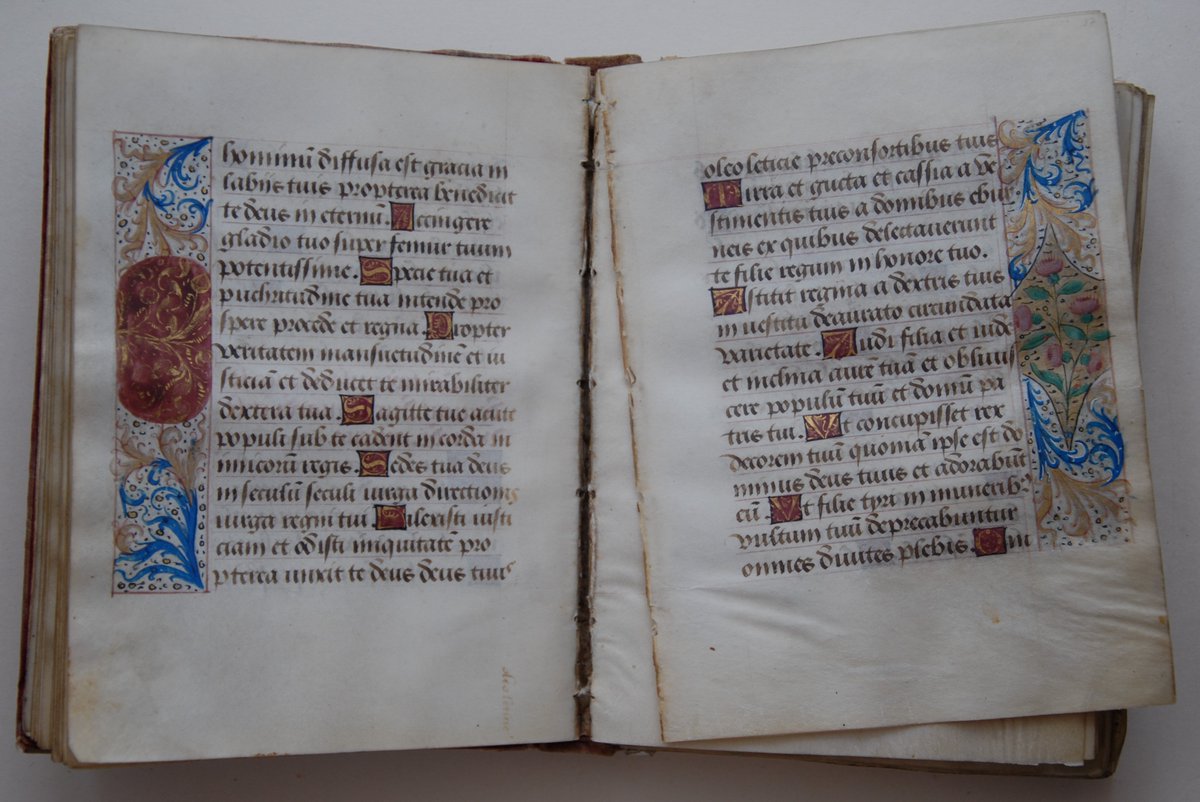 hominū diffusa est gracia in
labijs tuis propterea benedixit
te deus in eternū. Accingere
gladio tuo super femur tuum
potentissime. Specie tua et
pulchritudine tua intende pro
spere procede et regna. Propter
veritatem mansuetudinē et iu
sticiā et deducet te mirabiliter
dextera tua. Sagitte tue acute
populi sub te cadent in corda in
imicorū regis. Sedes tua deus
in seculū seculi uirga directionis
uirga regni tui. Dilexisti iusti
ciam et odisti iniquitatē pro
pterea unxit te deus deus tuus
oleo leticie preconsortibus tuis
Mirra et gucta et cassia a ve
stimentis tuis a domibus ebur
neis ex quibus delectauerunt
te filie regum in honore tuo.
Astitit regina a dextris tuis
in uestitu deaurato circundata
varietate. Audi filia et uide
et inclina aurē tuā et obliuis
cere populū tuū et domū pa
tris tui. Et concupisset rex
decorem tuū quoniā ipse est do
minus deus tuus et adorabūt
eū. Et filie tyri in munerib
vultum tuū deprecabuntur
omnes diuites plebis. Om